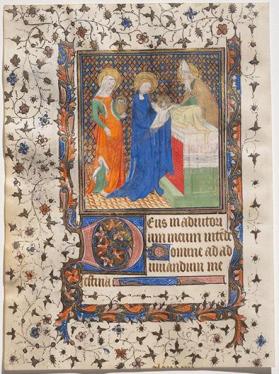 Deus in adiutori
um meum inten
Domine ad ad
iuuandum me
festina